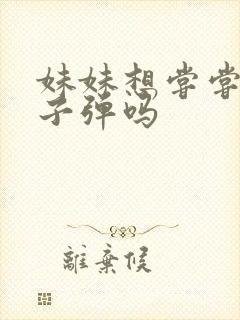 妹妹想尝尝
子弹吗
離棄候